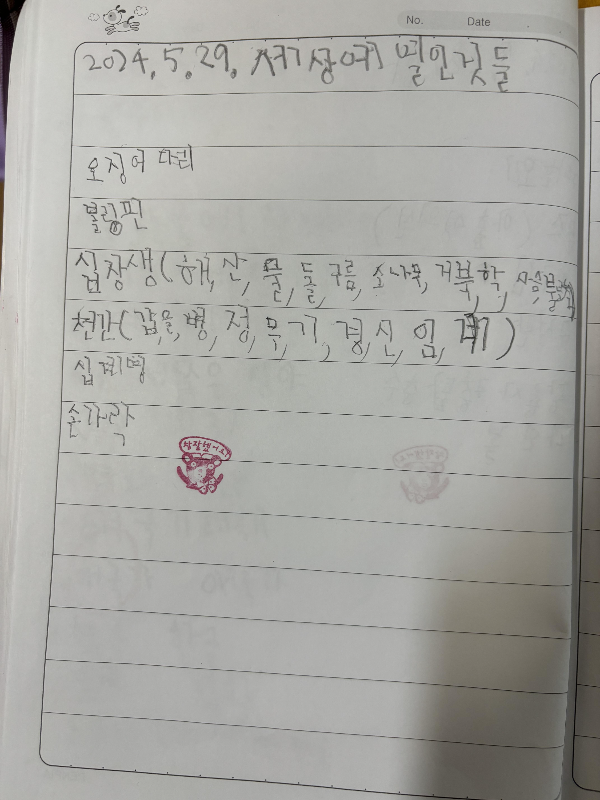 No. Date
2024.5.29. 세상에 열인것들
오징어 다리
볼링핀
십장생(해, 산, 물, 돌, 구름, 소나무, 거북, 학, 사슴,
천간(갑,을,병,정,무,기,경,신,임,계)
십계명
손가락
참잘했어요!